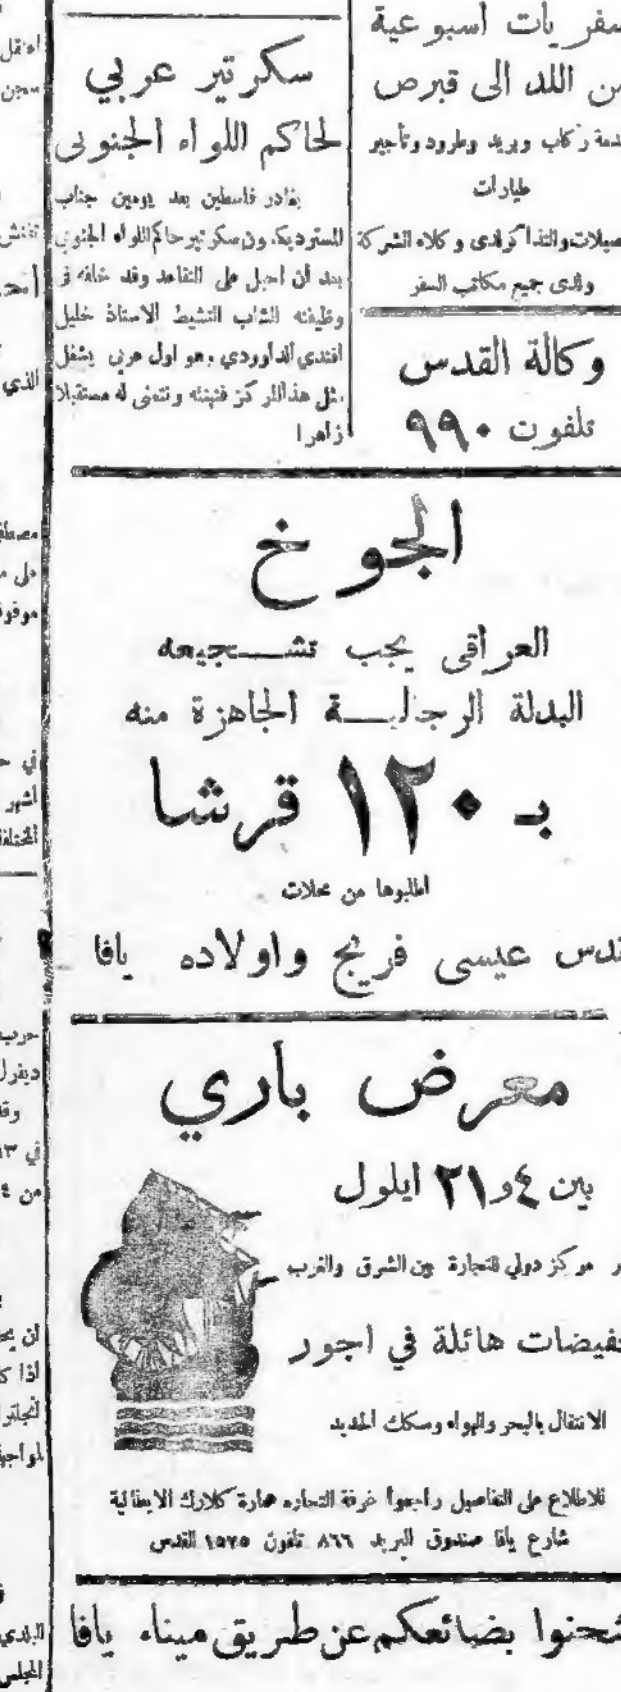 سفريات اسبوعية
من اللد الى قبرص
خدمة ركاب وبريد وطرود وتأجير
طيارات
والتذاكر لدى وكلاء الشركة
ولدى جميع مكاتب السفر
وكالة القدس
تلفون ٩٩٠
سكرتير عربي
لحاكم اللواء الجنوبى
يغادر فلسطين بعد يومين جناب
المستر ديكسون سكرتير حاكم اللواء الجنوبي
بعد أن احيل على التقاعد وقد خلفه في
وظيفته الشاب النشيط الاستاذ خليل
افندي الداوودي وهو اول عربي يشغل
مثل هذا المركز فنهنئه ونتمنى له مستقبلا
زاهرا
الجوخ
العراقي يجب تشجيعه
البدلة الرجالية الجاهزة منه
بـ ١٢٠ قرشا
اطلبوها من محلات
عيسى فريج واولاده يافا
معرض باري
بين ٤ و ٢١ ايلول
مركز دولي للتجارة بين الشرق والغرب
تخفيضات هائلة في اجور
الانتقال بالبحر والهواء وسكك الحديد
للاطلاع على التفاصيل راجعوا غرفة التجاره عمارة كلارك الايطالية
شارع يافا صندوق البريد ٨٦٦ تلفون ١٥٧٥ القدس
اشحنوا بضائعكم عن طريق ميناء يافا